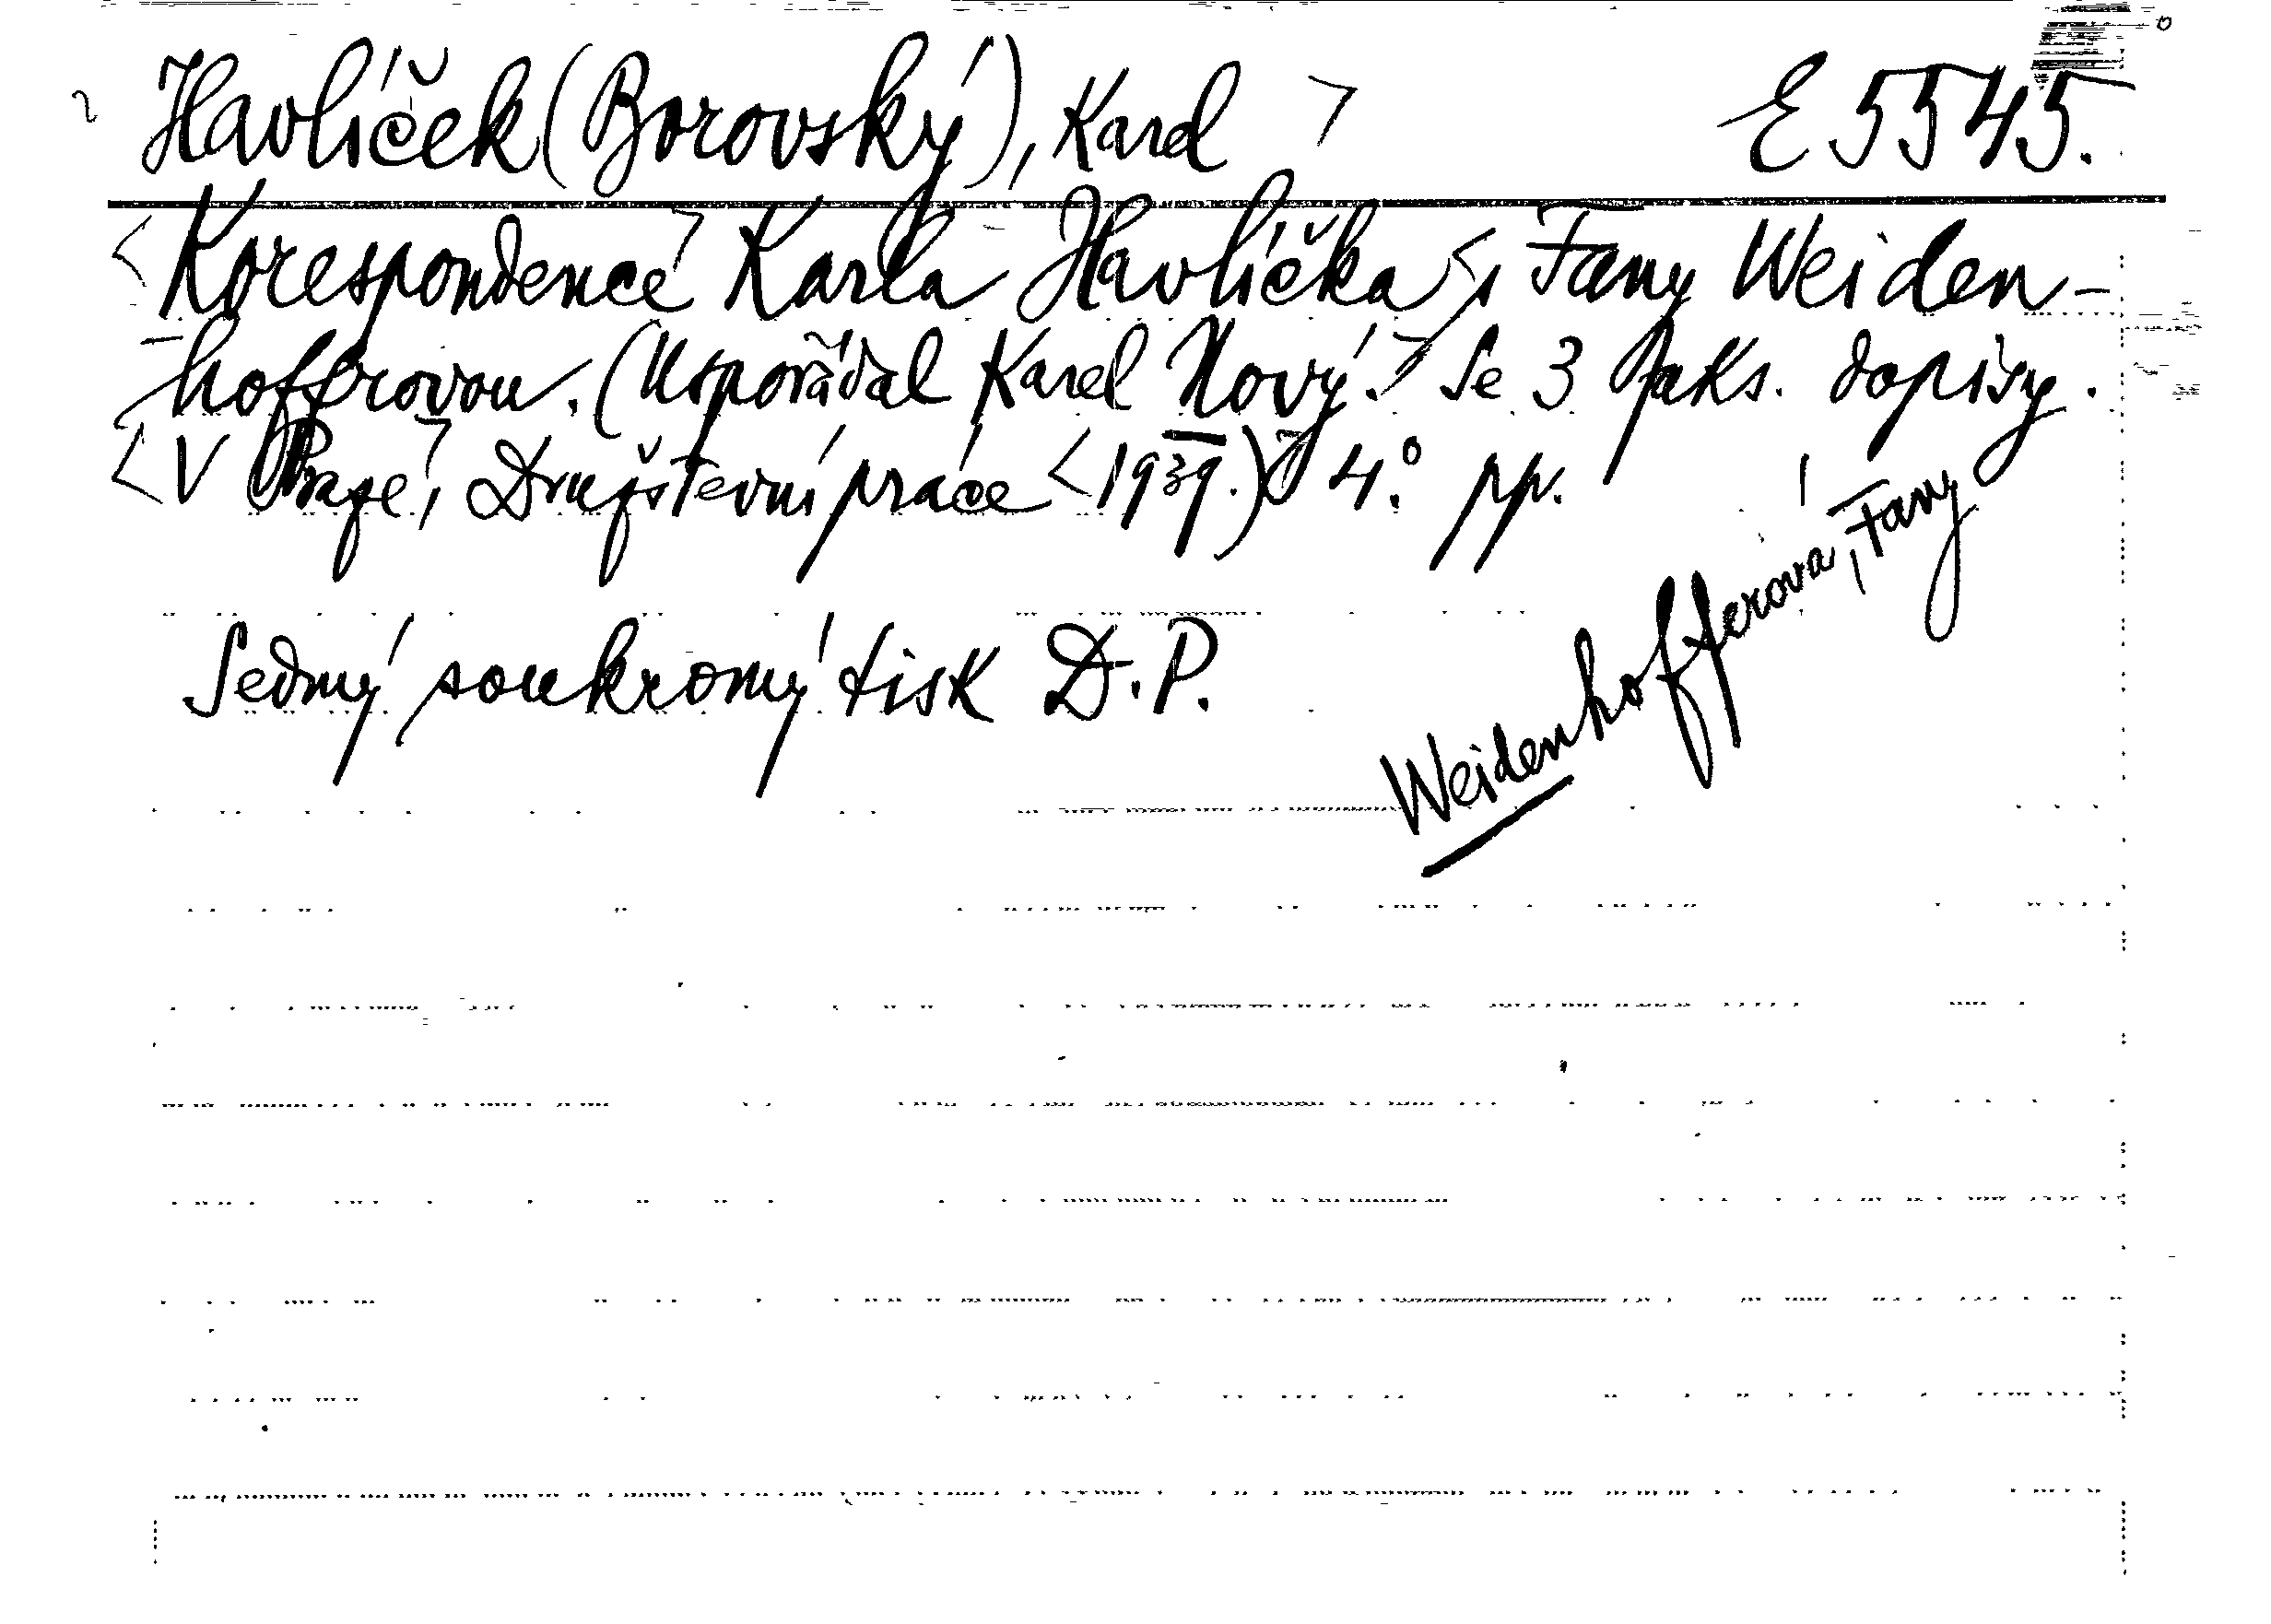 Havlíček (Borovský), Karel > E 5545.
<Korespondence> Karla Havlíčka <s Fany Weiden-
hofferovou. (Uspořádal Karel Nový.> Se 3 faks. dopisy.
<V Praze>, Družstevní práce <1939.)> 4.° pp.
Weidenhofferová, Fany
Sedmý soukromý tisk D.P.